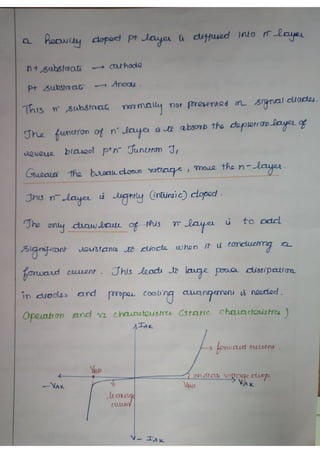 a heavily doped p+ layer is diffused into n⁻ layer
n+ substrate → cathode
p+ substrate → Anode.
This n⁻ substrate normally not preserved in signal diodes.
The function of n⁻ layer is to absorb the depletion layer of
reverse biased p+n⁻ Junction J₁
Greater the breakdown voltage, more the n-layer.
This n⁻ layer is lightly (intrinsic) doped.
The only drawback of this n⁻ layer is to add
significant resistance to diode when it is conducting a
forward current. This leads to large power dissipation
in diodes and proper cooling arrangement is needed.
Operation and v1 characteristics (static characteristics)
IAK
→ forward current.
VBD
-VAK
leakage
current
voltage drop
VAK
V- IAK